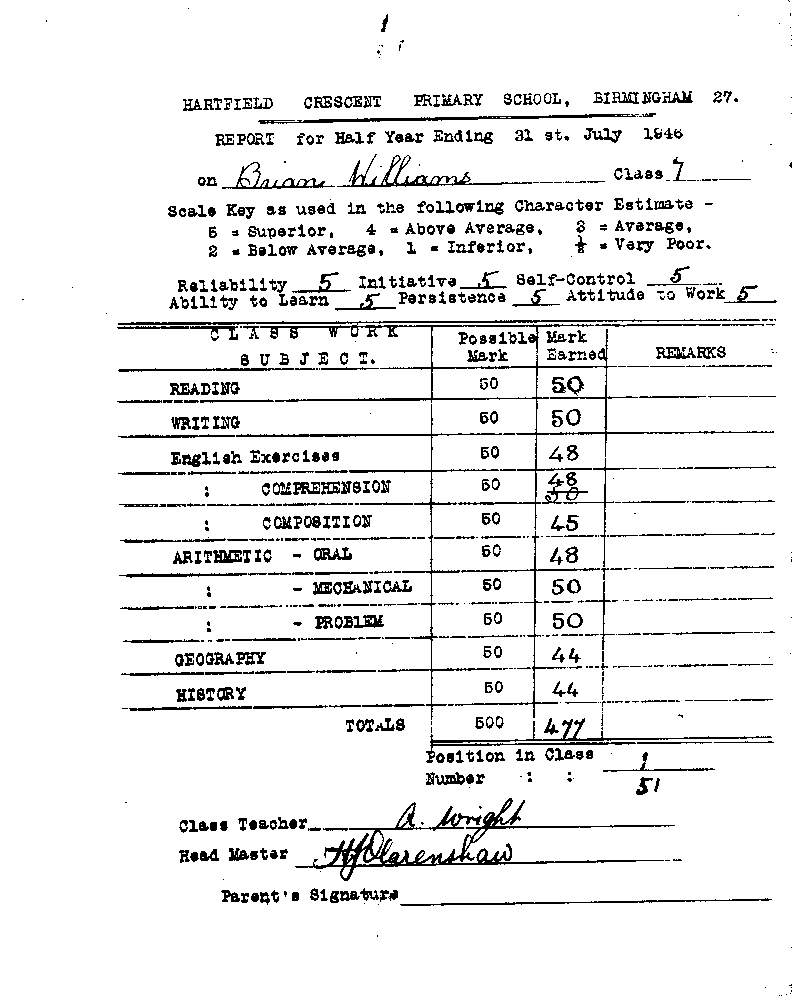 1
HARTFIELD CRESCENT PRIMARY SCHOOL, BIRMINGHAM 27.
REPORT for Half Year Ending 31 st. July 1946
on Brian Williams Class 7
Scale Key as used in the following Character Estimate -
5 = Superior, 4 = Above Average, 3 = Average,
2 = Below Average, 1 = Inferior, ½ = Very Poor.
Reliability 5 Initiative 5 Self-Control 5
Ability to Learn 5 Persistence 5 Attitude to Work 5
CLASS WORK SUBJECT. Possible Mark Mark Earned REMARKS
READING 50 50
WRITING 50 50
English Exercises 50 48
: COMPREHENSION 50 48 50
: COMPOSITION 50 45
ARITHMETIC - ORAL 50 48
: - MECHANICAL 50 50
: - PROBLEM 50 50
GEOGRAPHY 50 44
HISTORY 50 44
TOTALS 500 477
Position in Class 1
Number : : 51
Class Teacher A. Wright
Head Master
Parent's Signature